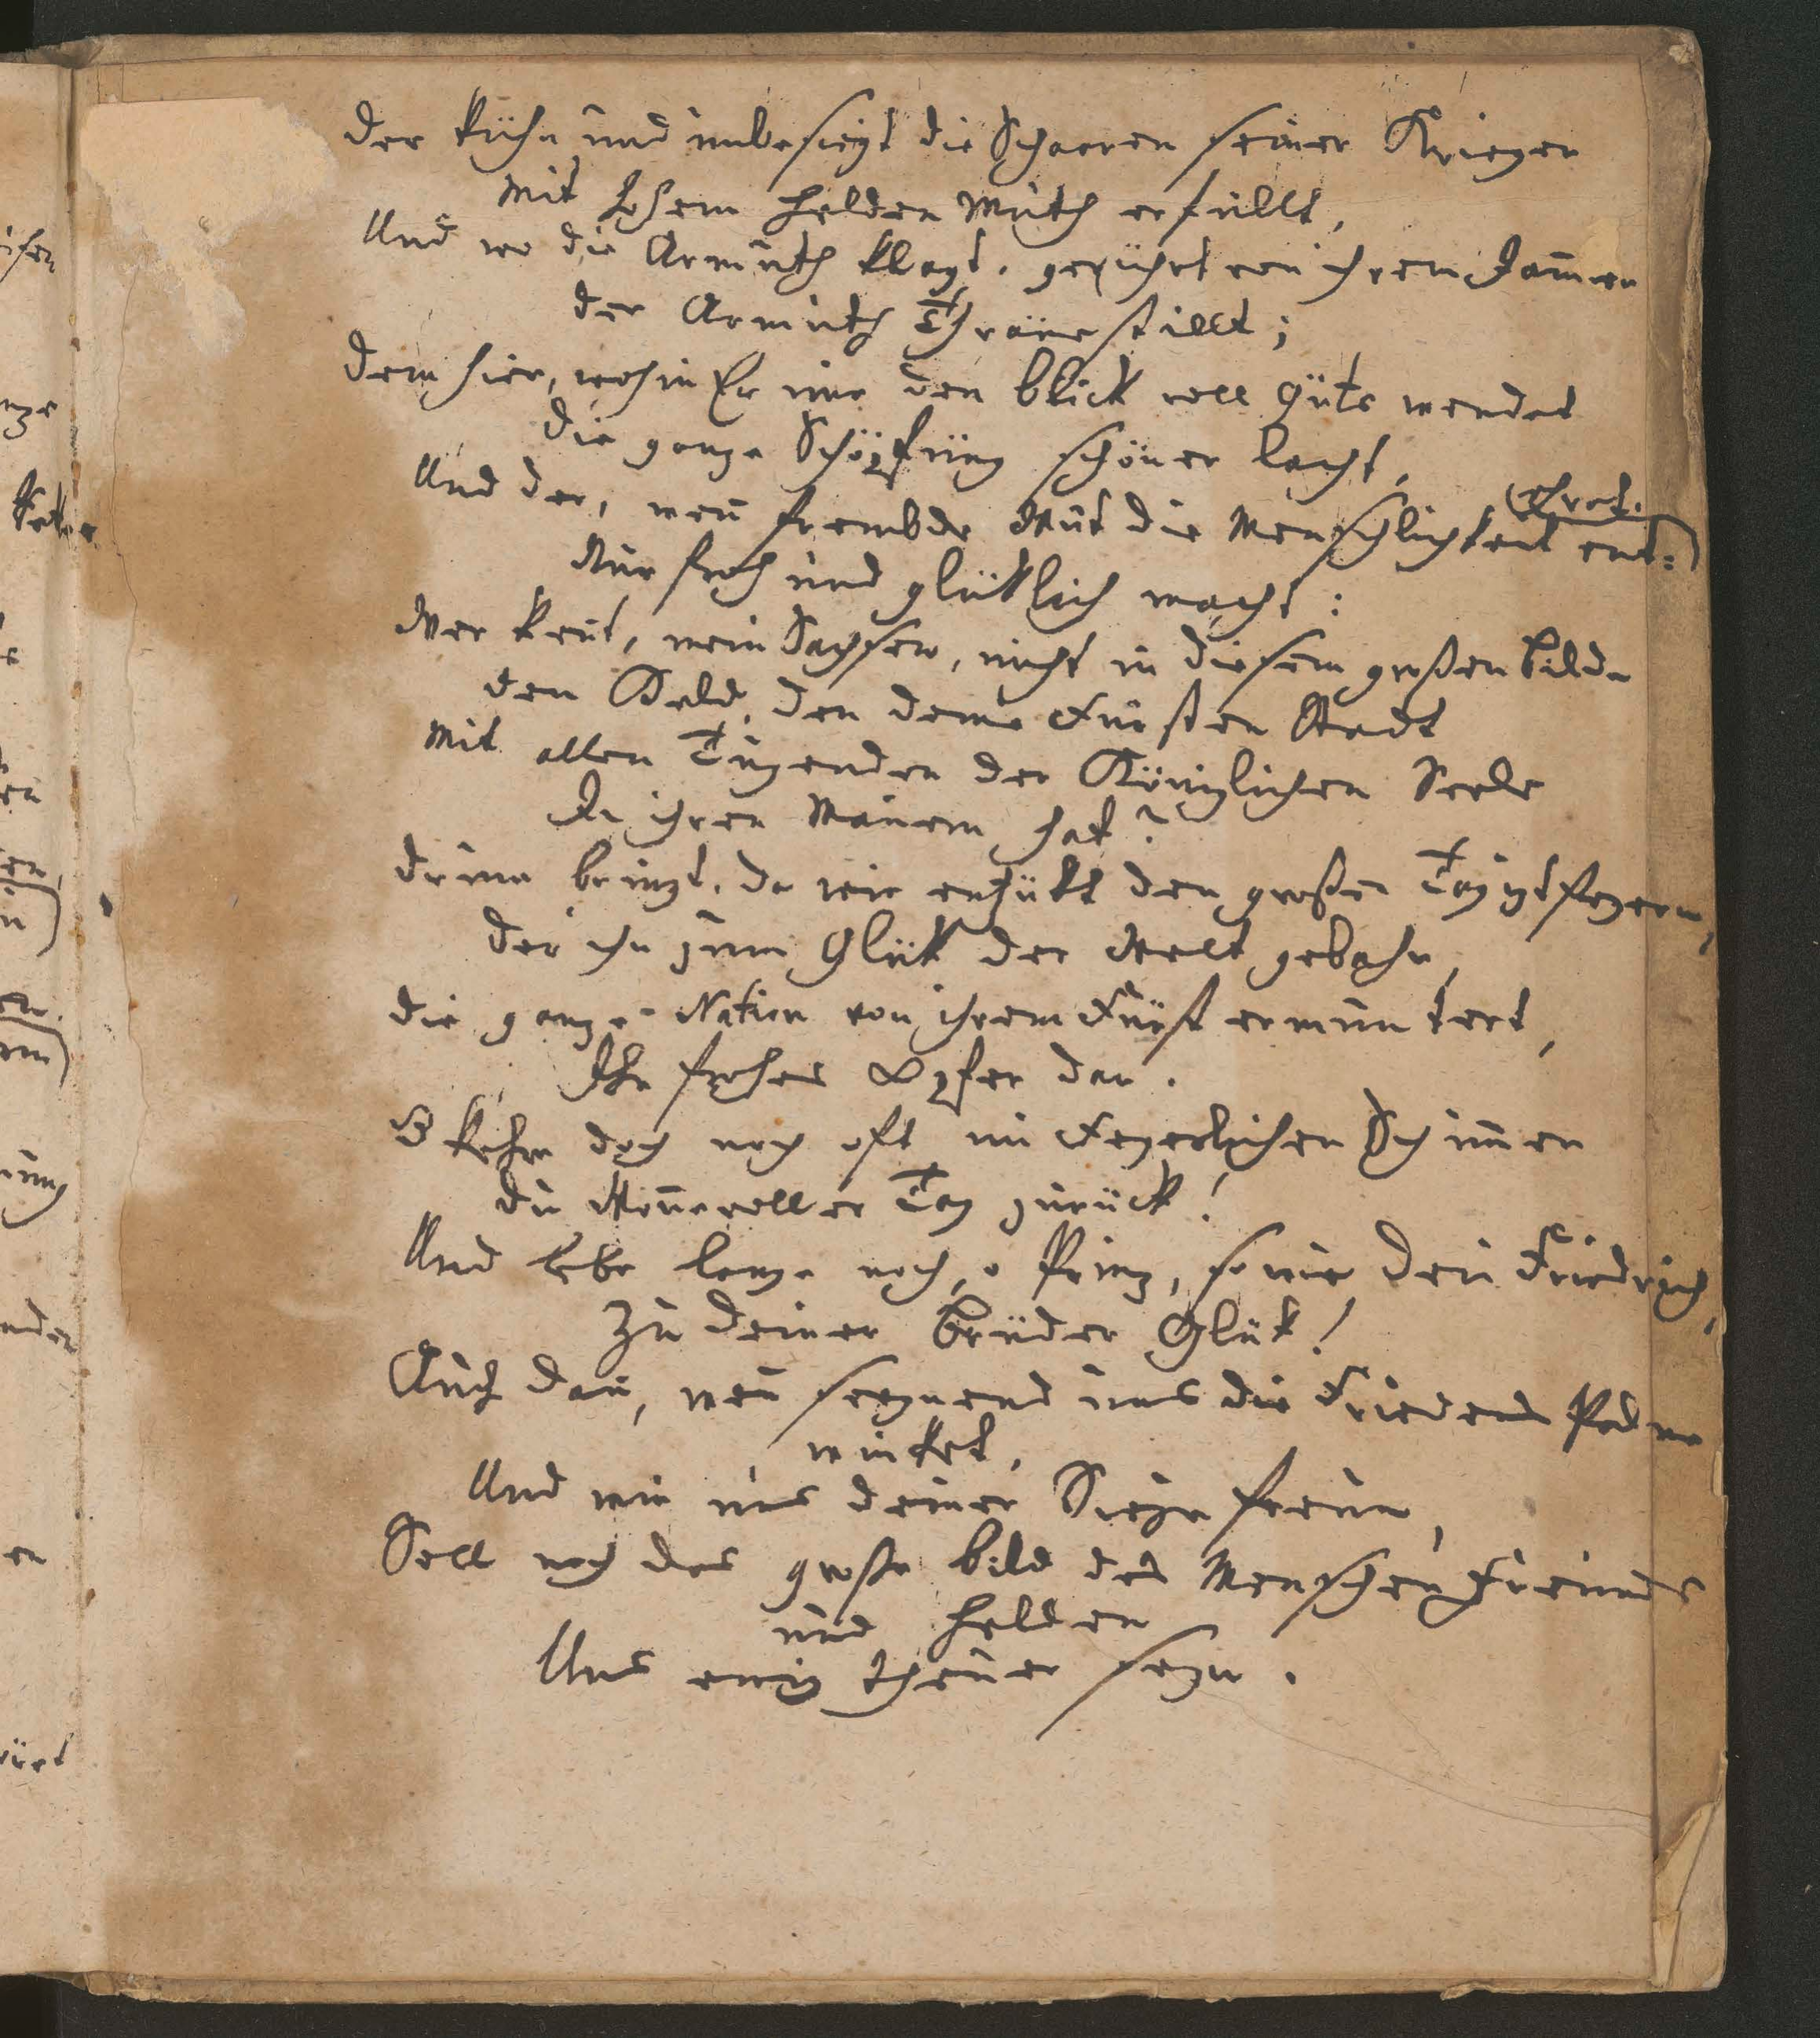 Der kühn und unbesiegt die Schaaren seiner Krieger
Mit hohem Helden Muth erfüllt,
Und wo die Armuth klagt, gerührt von ihrem Jam̄er
Der Armuth Thräne stillt;
Dem hier, wohin Er nur den Blick voll Güte wendet
Die ganze Schöpfung schöner lacht,
Und der, wen̄ frembde Wut die Menschlichkeit ent=
ehret.
Nur froh und glüklich macht:
Wer ken̄t, mein Sachsen, nicht in diesem großen Bilde
Den Held, den deine Fürsten Stadt
Mit allen Tugenden der Königlichen Seele
In ihren Mauern hat?
Drum bringt, da wir entzükt den großen Tag izt feyern,
Der ihn zum Glük der Welt gebahr,
Die ganze Nation von ihrem Fürst ermuntert,
Ihr frohes Opfer dar.
O kehre doch noch oft im Feyerlichen Schim̄er
Du Won̄evoller Tag zurück!
Und lebe lange noch, o Prinz, so wie Dein Friedrich,
Zu Deiner Brüder Glük!
Auch dan̄, wen̄ seegnend uns die Friedens Palme
winket,
Und wir uns deiner Siege freun,
Soll noch das große Bild des Menschen Freundes
und Helden
Uns ewig theuer seyn.